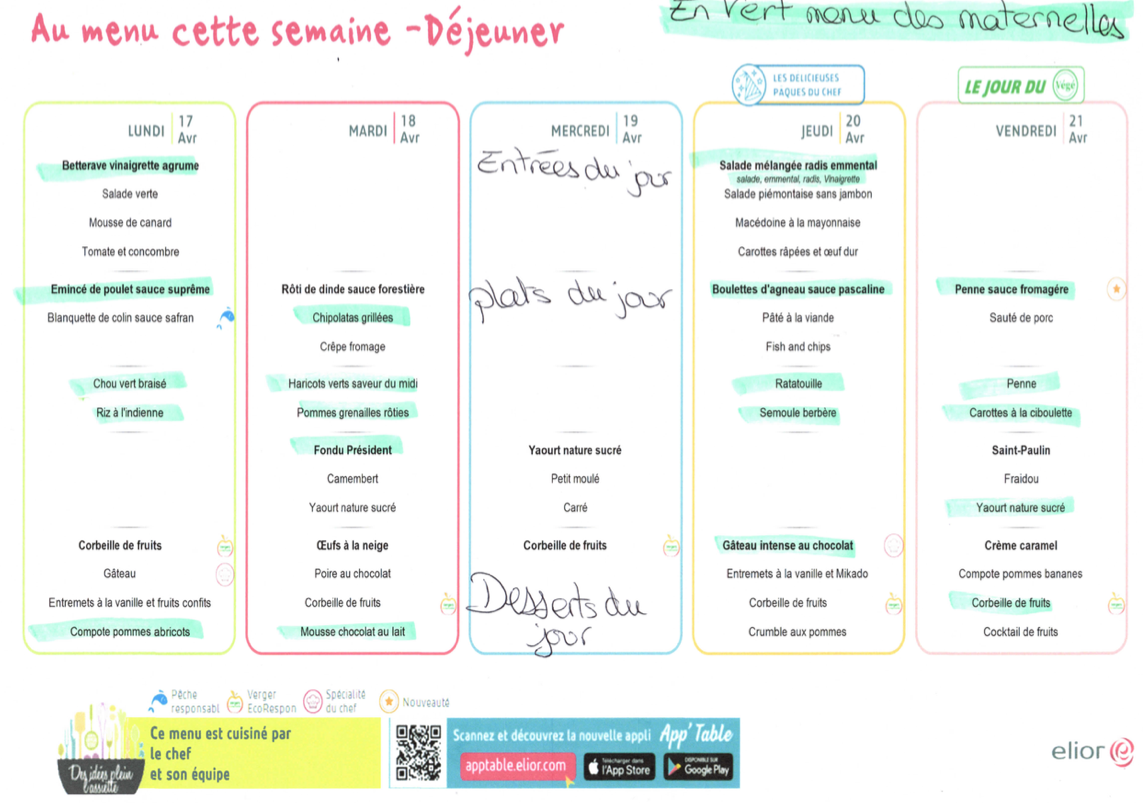 Au menu cette semaine - Déjeuner
En vert menu des maternelles
LES DELICIEUSES
PAQUES DU CHEF
LE JOUR DU Végé
LUNDI 17 Avr
Betterave vinaigrette agrume
Salade verte
Mousse de canard
Tomate et concombre
Emincé de poulet sauce suprême
Blanquette de colin sauce safran
Chou vert braisé
Riz à l'indienne
Corbeille de fruits
Gâteau
Entremets à la vanille et fruits confits
Compote pommes abricots
MARDI 18 Avr
Rôti de dinde sauce forestière
Chipolatas grillées
Crêpe fromage
Haricots verts saveur du midi
Pommes grenailles rôties
Fondu Président
Camembert
Yaourt nature sucré
Œufs à la neige
Poire au chocolat
Corbeille de fruits
Mousse chocolat au lait
MERCREDI 19 Avr
Entrées du jour
plats du jour
Yaourt nature sucré
Petit moulé
Carré
Corbeille de fruits
Desserts du
jour
JEUDI 20 Avr
Salade mélangée radis emmental
salade, emmental, radis, Vinaigrette
Salade piémontaise sans jambon
Macédoine à la mayonnaise
Carottes râpées et œuf dur
Boulettes d'agneau sauce pascaline
Pâté à la viande
Fish and chips
Ratatouille
Semoule berbère
Gâteau intense au chocolat
Entremets à la vanille et Mikado
Corbeille de fruits
Crumble aux pommes
VENDREDI 21 Avr
Penne sauce fromagére
Sauté de porc
Penne
Carottes à la ciboulette
Saint-Paulin
Fraidou
Yaourt nature sucré
Crème caramel
Compote pommes bananes
Corbeille de fruits
Cocktail de fruits
Pêche
responsabl
Verger
EcoRespon
Spécialité
du chef
Nouveauté
Des idées plein
l'assiette
Ce menu est cuisiné par
le chef
et son équipe
Scannez et découvrez la nouvelle appli App' Table
apptable.elior.com
Télécharger dans
l'App Store
DISPONIBLE SUR
Google Play
elior